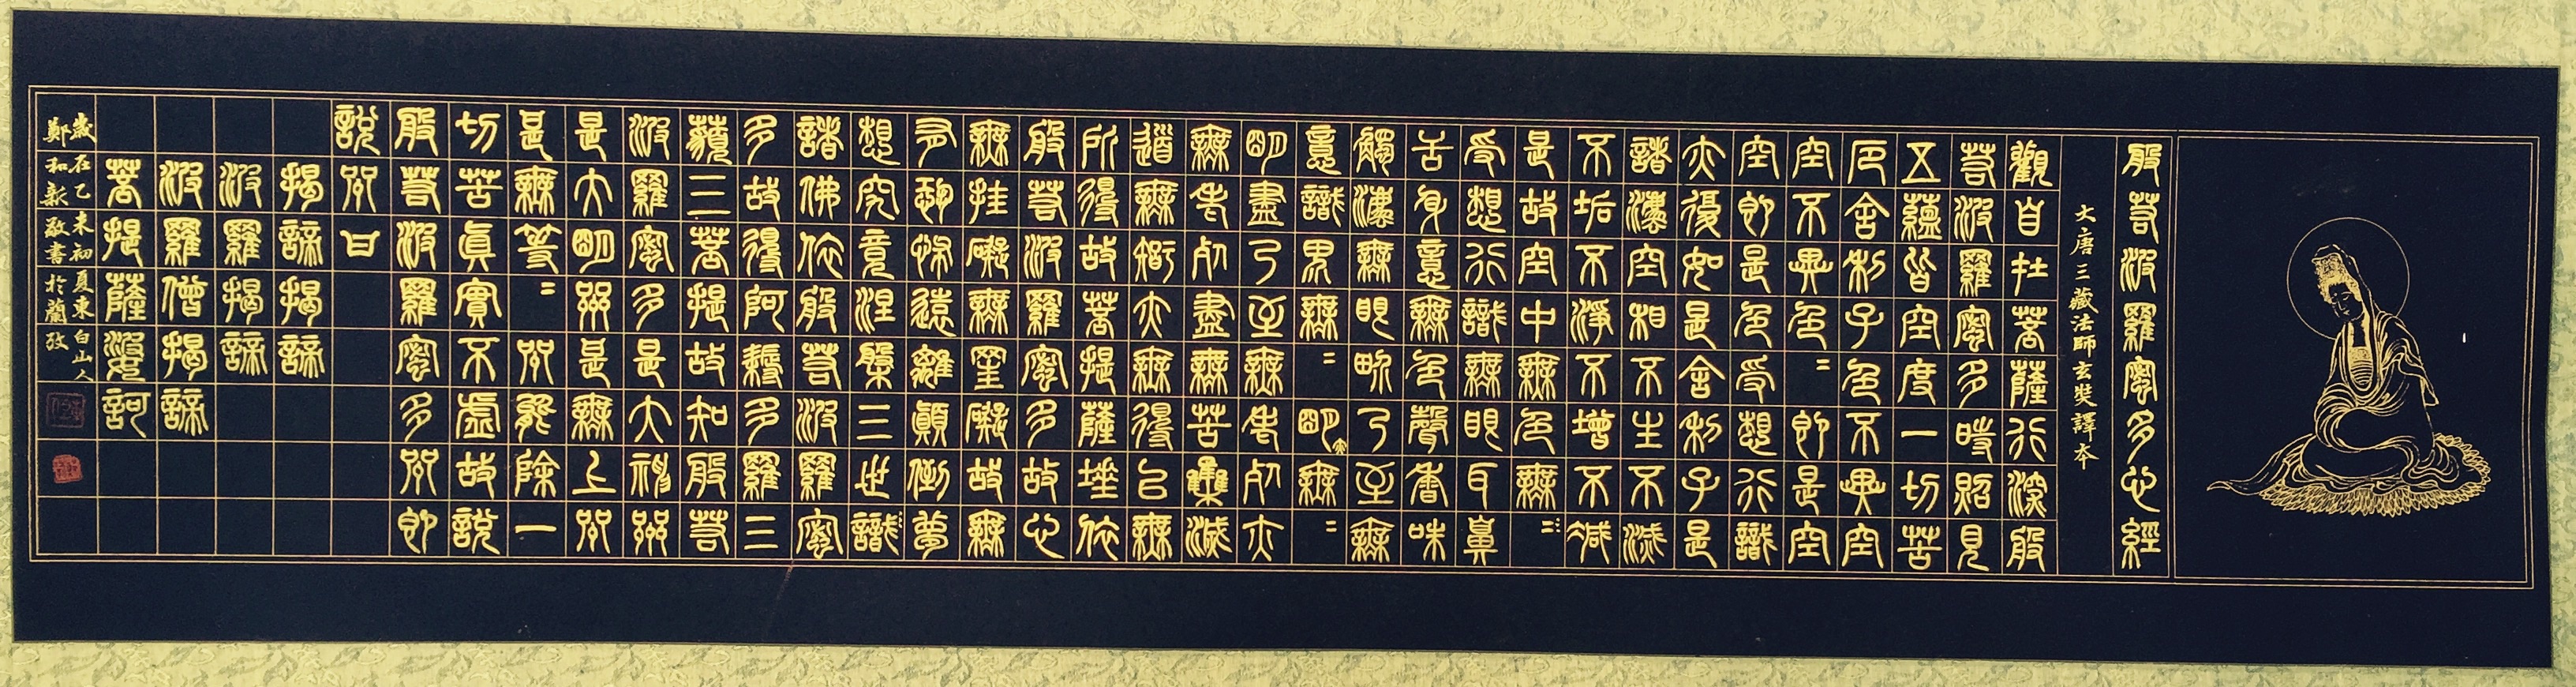 般若波羅蜜多心經
大唐三藏法師玄奘譯本
觀自在菩薩行深般
若波羅蜜多時照見
五蘊皆空度一切苦
厄舍利子色不異空
空不異色〻即是空
空即是色受想行識
亦復如是舍利子是
諸法空相不生不滅
不垢不淨不增不減
是故空中無色無〻
受想行識無眼耳鼻
舌身意無色聲香味
觸法無眼界乃至無
意識界無〻明無〻
明盡乃至無老死亦
無老死盡無苦集滅
道無智亦無得以無
所得故菩提薩埵依
般若波羅蜜多故心
無罣礙無罣礙故無
有恐怖遠離顛倒夢
想究竟涅槃三世識
諸佛依般若波羅蜜
多故得阿耨多羅三
藐三菩提故知般若
波羅蜜多是大神咒
是大明咒是無上咒
是無等〻咒能除一
切苦真實不虛故說
般若波羅蜜多咒即
說咒曰
揭諦揭諦
波羅揭諦
波羅僧揭諦
菩提薩婆訶
歲在乙未初夏東白山人
鄭和新敬書於蘭